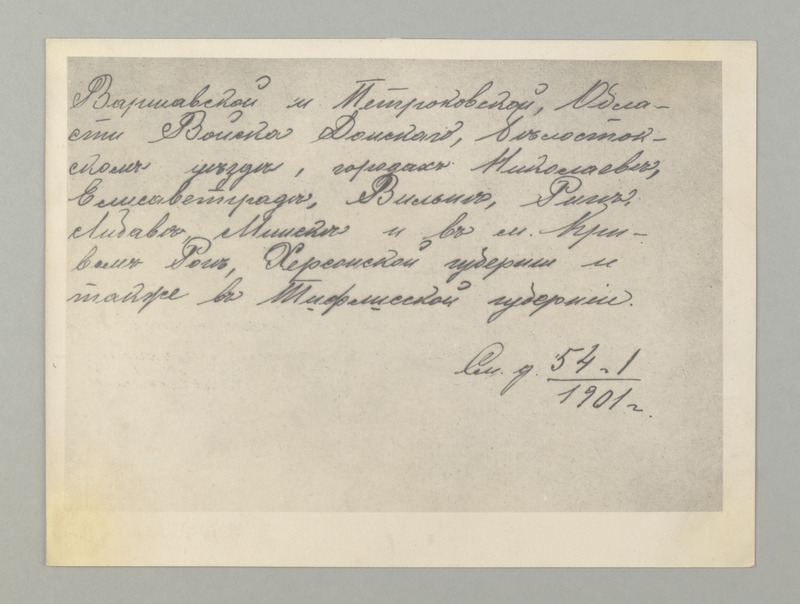 Варшавской и Петроковской, Обла-
сти Войска Донскаго, Бѣлосток-
скомъ уѣздѣ, городахъ Николаевѣ,
Елисаветградѣ, Вильнѣ, Ригѣ,
Либавѣ, Минскѣ и въ м. Кри-
вомъ Рогѣ, Херсонской губерніи и
также въ Тифлисской губерніи.
См. д. 54-1
1901 г.